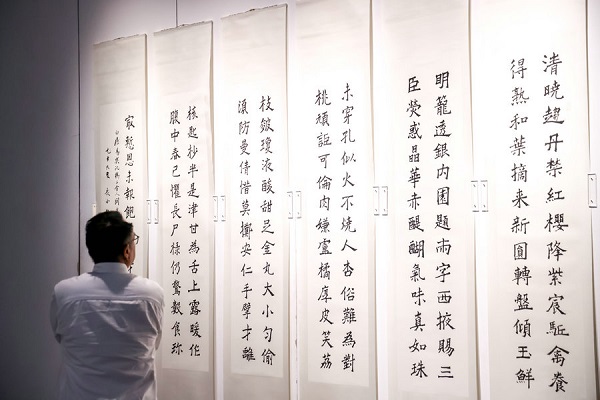 清曉趨丹禁紅櫻降紫宸駈禽養
得熟和葉摘來新圓轉盤傾玉鮮
明籠透銀內園題兩字西掖賜三
臣熒惑晶華赤醍醐氣味真如珠
未穿孔似火不燒人杏俗難為對
桃頑詎可倫肉嫌盧橘厚皮笑荔
枝皴瓊液酸甜足金丸大小勻偷
須防曼倩惜莫擲安仁手擘才離
核匙抄半是津甘為舌上露暖作
腹中春已懼長尸祿仍驚數食珍
冣慙恩未報飽